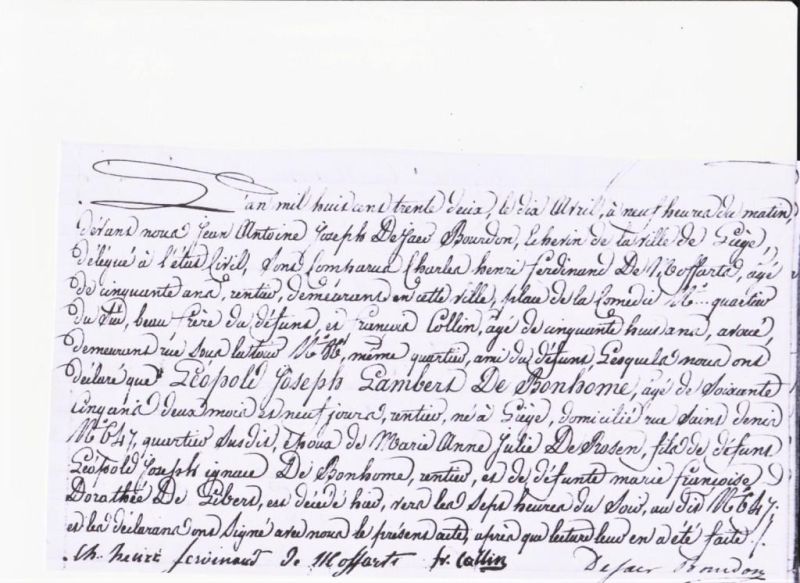 L'an mil huit cent trente deux, le dix Avril, à neuf heures du matin,
devant nous Jean Antoine Joseph DeJaer Bourdon, Echevin de la ville de Liége,
délégué à l'état Civil, sont comparus Charles henri Ferdinand De Moffarts, agé
de cinquante ans, rentier, demeurant en cette ville, place de la Comedie N° ... quartier
du Sud, beau frère du défunt, et francois Collin, agé de cinquante huit ans, avoué,
demeurant rue Sous la tour N° même quartier, ami du défunt, Lesquels nous ont
déclaré que Léopold Joseph Lambert De Bonhome, agé de Soixante
cinq ans deux mois et neuf jours, rentier, né à Liége, domicilié rue Saint denis
N° 647, quartier susdit, Epoux de Marie Anne Julie De Rosen, fils de défunt
Léopold Joseph ignace De Bonhome, rentier, et de défunte marie françoise
Dorothée De Libert, est décédé hier, vers les Sept heures du Soir, au dit N° 647.
et les déclarans ont Signé avec nous le présent acte, après que lecture leur en a été faite.
Ch. henri ferdinand de Moffarts fr. Collin DeJaer Bourdon